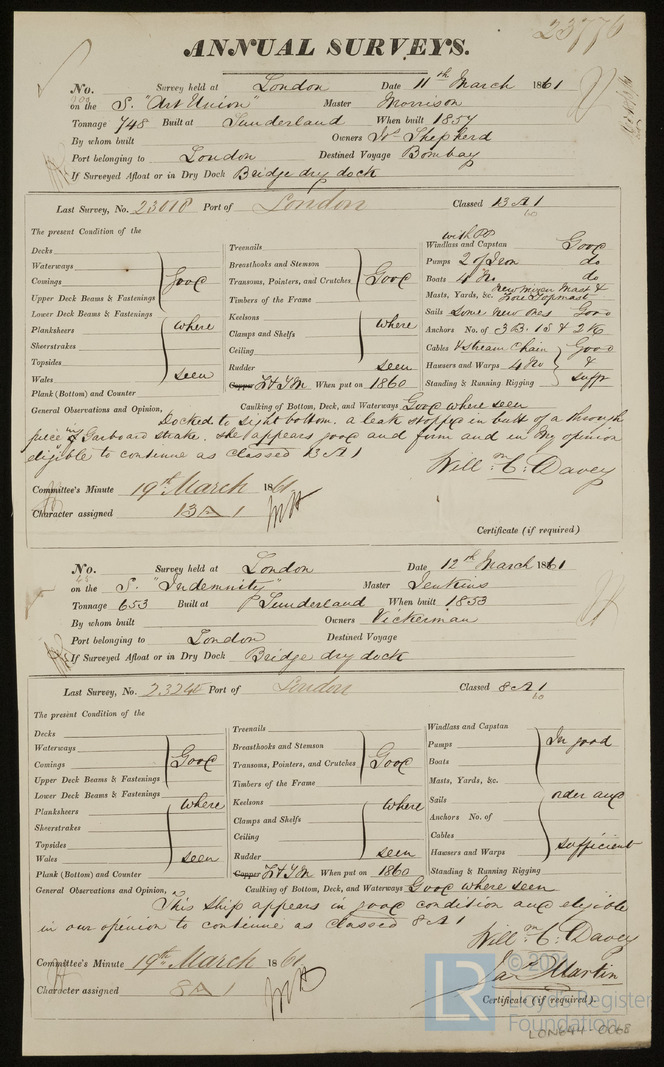 23776
ANNUAL SURVEYS.
No. Survey held at London Date 11th March 1861
on the S. "Art Union" Master Morrison
Tonnage 748 Built at Sunderland When built 1857
By whom built Owners Wm Shepherd
Port belonging to London Destined Voyage Bombay
If Surveyed Afloat or in Dry Dock Bridge dry dock
Last Survey, No. 23018 Port of London Classed 13 A 1
60
The present Condition of the
Decks
Waterways
Comings
Upper Deck Beams & Fastenings
Good
Lower Deck Beams & Fastenings
Planksheers
Sheerstrakes
Topsides
Wales
where
seen
Plank (Bottom) and Counter
Treenails
Breasthooks and Stemson
Transoms, Pointers, and Crutches
Timbers of the Frame
Good
Keelsons
Clamps and Shelfs
Ceiling
Rudder
where
seen
Copper F & YM When put on 1860
with PP
Windlass and Capstan Good
Pumps 2 of Iron do
Boats 4 No do
Masts, Yards, &c. New mizen Mast & Fore Topmast
Sails some new ones Good
Anchors No. of 3 B. 1 S & 2 K
Cables & stream Chain Good
Hawsers and Warps 4 No &
Standing & Running Rigging sufft
General Observations and Opinion, Caulking of Bottom, Deck, and Waterways Good where seen
Docked to sight bottom. a leak stopped in butt of a through
piece of Garboard strake. she appears good and firm and in my opinion
eligible to continue as classed 13 A 1
Willm C. Davey
Committee's Minute 19th March 1861
Character assigned 13 A 1
Certificate (if required)
No. Survey held at London Date 12th March 1861
on the S. "Indemnity" Master Jenkins
Tonnage 653 Built at Sunderland When built 1853
By whom built Owners Vickerman
Port belonging to London Destined Voyage
If Surveyed Afloat or in Dry Dock Bridge dry dock
Last Survey, No. 23245 Port of London Classed 8 A 1
60
The present Condition of the
Decks
Waterways
Comings
Upper Deck Beams & Fastenings
Good
Lower Deck Beams & Fastenings
Planksheers
Sheerstrakes
Topsides
Wales
where
seen
Plank (Bottom) and Counter
Treenails
Breasthooks and Stemson
Transoms, Pointers, and Crutches
Timbers of the Frame
Good
Keelsons
Clamps and Shelfs
Ceiling
Rudder
where
seen
Copper F & YM When put on 1860
Windlass and Capstan
Pumps
Boats
Masts, Yards, &c.
In good
Sails
Anchors No. of
Cables
Hawsers and Warps
order and
sufficient
Standing & Running Rigging
General Observations and Opinion, Caulking of Bottom, Deck, and Waterways Good where seen
This ship appears in good condition and eligible
in our opinion to continue as classed 8 A 1
Willm C. Davey
Martin
Committee's Minute 19th March 1861
Character assigned 8 A 1
Certificate (if required)
LR
Lloyd's Register
Foundation
LON644-0068